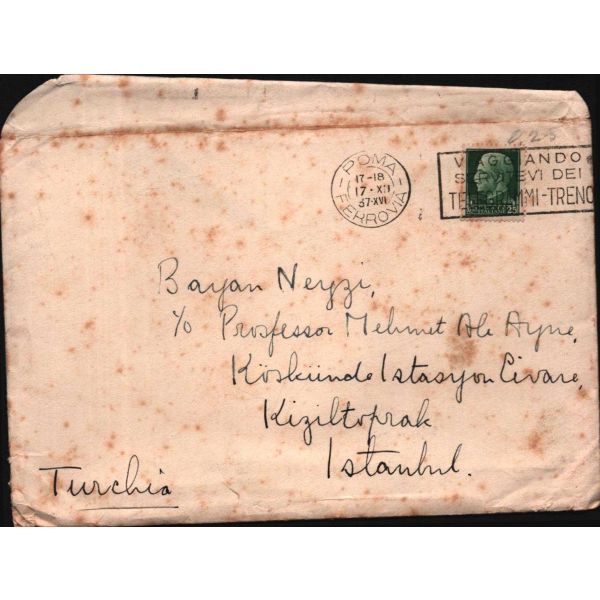 0.25
ROMA
FERROVIA
17-18
17·XII
37·XVI
VIAGGIANDO
SERVITEVI DEI
TELEGRAMMI-TRENO
25
Bayan Neyzi,
c/o Prosfessor Mehmet Ale Ayne,
Köskünde Istasyon Civare,
Kiziltoprak
Istanbul.
Turchia